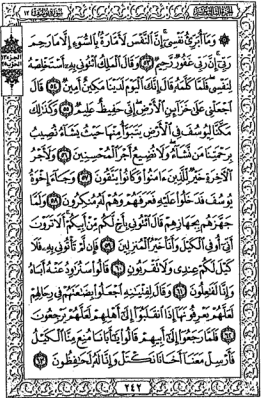 ۞ وَمَآ أُبَرِّئُ نَفْسِىٓ إِنَّ ٱلنَّفْسَ لَأَمَّارَةٌۢ بِٱلسُّوٓءِ إِلَّا مَا رَحِمَ
رَبِّىٓ إِنَّ رَبِّى غَفُورٌ رَّحِيمٌ ٥٣ وَقَالَ ٱلْمَلِكُ ٱئْتُونِى بِهِۦٓ أَسْتَخْلِصْهُ
لِنَفْسِى فَلَمَّا كَلَّمَهُۥ قَالَ إِنَّكَ ٱلْيَوْمَ لَدَيْنَا مَكِينٌ أَمِينٌ ٥٤ قَالَ
ٱجْعَلْنِى عَلَىٰ خَزَآئِنِ ٱلْأَرْضِ إِنِّى حَفِيظٌ عَلِيمٌ ٥٥ وَكَذَٰلِكَ
مَكَّنَّا لِيُوسُفَ فِى ٱلْأَرْضِ يَتَبَوَّأُ مِنْهَا حَيْثُ يَشَآءُ نُصِيبُ
بِرَحْمَتِنَا مَن نَّشَآءُ وَلَا نُضِيعُ أَجْرَ ٱلْمُحْسِنِينَ ٥٦ وَلَأَجْرُ
ٱلْـَٔاخِرَةِ خَيْرٌ لِّلَّذِينَ ءَامَنُوا۟ وَكَانُوا۟ يَتَّقُونَ ٥٧ وَجَآءَ إِخْوَةُ
يُوسُفَ فَدَخَلُوا۟ عَلَيْهِ فَعَرَفَهُمْ وَهُمْ لَهُۥ مُنكِرُونَ ٥٨ وَلَمَّا
جَهَّزَهُم بِجَهَازِهِمْ قَالَ ٱئْتُونِى بِأَخٍ لَّكُم مِّنْ أَبِيكُمْ أَلَا تَرَوْنَ
أَنِّىٓ أُوفِى ٱلْكَيْلَ وَأَنَا۠ خَيْرُ ٱلْمُنزِلِينَ ٥٩ فَإِن لَّمْ تَأْتُونِى بِهِۦ فَلَا
كَيْلَ لَكُمْ عِندِى وَلَا تَقْرَبُونِ ٦٠ قَالُوا۟ سَنُرَٰوِدُ عَنْهُ أَبَاهُ
وَإِنَّا لَفَٰعِلُونَ ٦١ وَقَالَ لِفِتْيَٰنِهِ ٱجْعَلُوا۟ بِضَٰعَتَهُمْ فِى رِحَالِهِمْ
لَعَلَّهُمْ يَعْرِفُونَهَآ إِذَا ٱنقَلَبُوٓا۟ إِلَىٰٓ أَهْلِهِمْ لَعَلَّهُمْ يَرْجِعُونَ
٦٢ فَلَمَّا رَجَعُوٓا۟ إِلَىٰٓ أَبِيهِمْ قَالُوا۟ يَٰٓأَبَانَا مُنِعَ مِنَّا ٱلْكَيْلُ
فَأَرْسِلْ مَعَنَآ أَخَانَا نَكْتَلْ وَإِنَّا لَهُۥ لَحَٰفِظُونَ ٦٣
٢٤٢